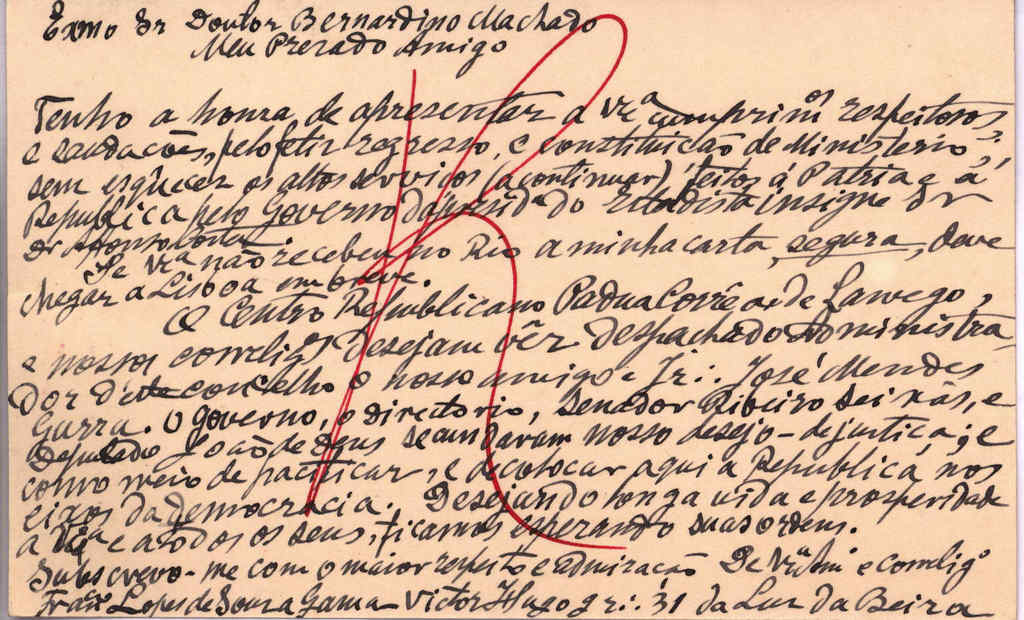 Exmo Sr Doutor Bernardino Machado
Meu Prezado Amigo
Tenho a honra de apresentar a Vrª cumprimºs respeitosos,
e saudações, pelo feliz regresso, e constituição de Ministerio;
sem esquecer os altos serviços (a continuar) feitos á Patria e á
Republica pelo Governo da presidª do Estadista insigne Sr
Dr Affonso Costa
Se Vrª não recebeu no Rio a minha carta, segura, deve
chegar a Lisboa em breve.
O Centro Republicano Padua Corrêa de Lamego,
e nossos correligºs desejam vêr despachado Administra
dor d'este concelho o nosso amigo e Ir∴ José Mendes
Guerra. O Governo, o directorio, Senador Ribeiro Seixas, e
Deputado João de Deus secundaram nosso desejo - de justiça; e
como meio de pacificar, e de colocar aqui a Republica nos
eixos da democracia. Desejando longa vida e prosperidade
a Vrª e a todos os seus, ficamos esperando suas ordens.
Subscrevo-me com o maior respeito e admiração De e correligº
Francº Lopes de Souza Gama Victor Hugo gr∴ 31 da Luz da Beira